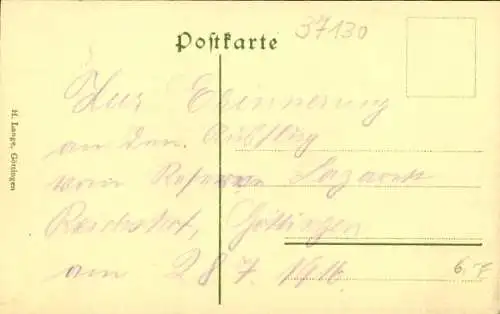 37130
Postkarte
Zur Erinnerung
an den Ausflug
vom Reserve Lazarett
Göttingen
am 28 7. 1916
6.7
H. Lange, Göttingen